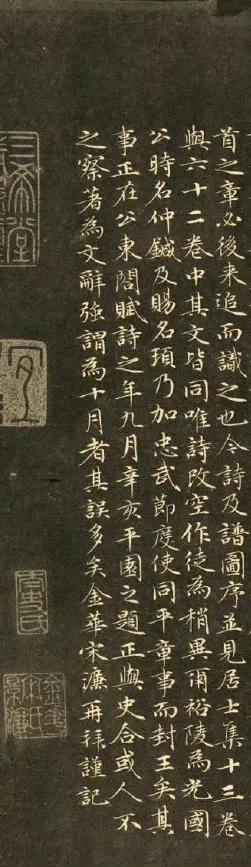 首之章必後来追而識之也今詩及譜圖序並見居士集十三卷
與六十二卷中其文皆同唯詩改空作徒為稍異爾裕陵為光國
公時名仲鍼及賜名頊乃加忠武節度使同平章事而封王矣其
事正在公東閣賦詩之年九月辛亥平園之題正與史合或人不
之察著為文辭強謂為十月者其誤多矣金華宋濂再拜謹記
三希堂
宜